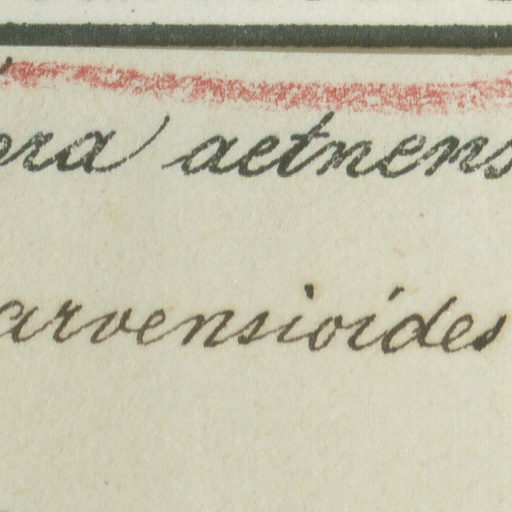 era aetnens
arvensioides